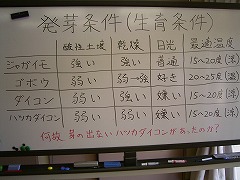 発芽条件(生育条件)
酸性土壌 乾燥 日光 最適温度
ジャガイモ 強い 強い 普通 15~20度(涼)
ゴボウ 弱い 弱→強い 好き 20~25度(温)
ダイコン 弱い 弱い 嫌い 15~20度(涼)
ハツカダイコン 弱い 弱い 嫌い 15~20度(涼)
何故 芽の出ないハツカダイコンがあったのか?